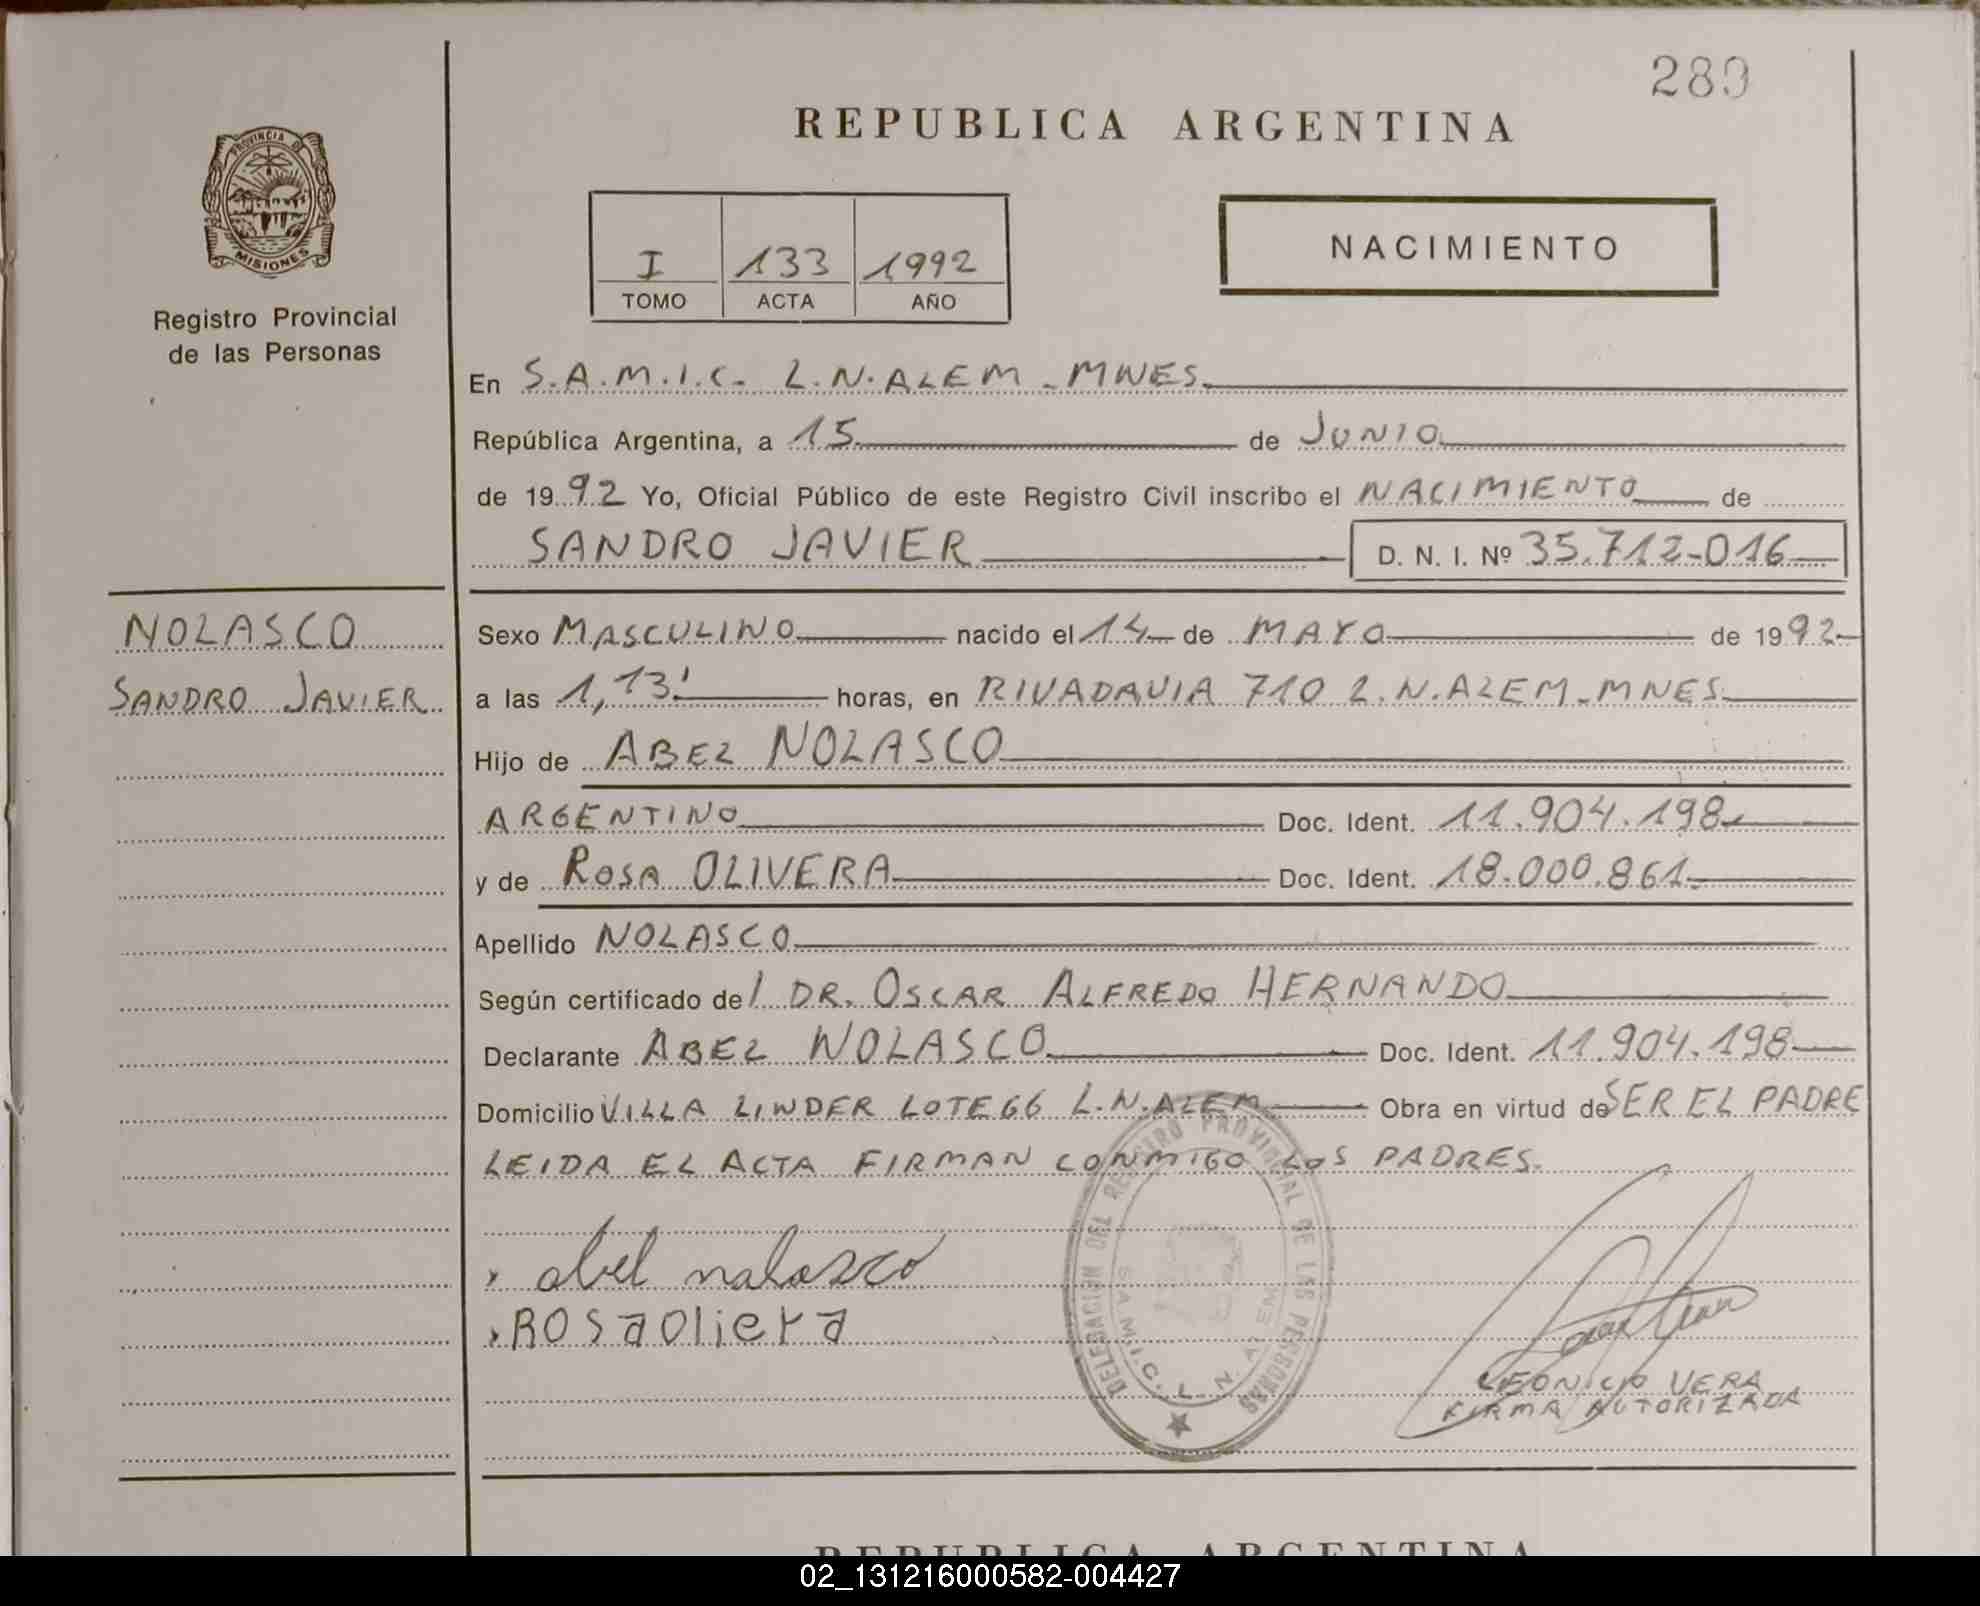 289
REPUBLICA ARGENTINA
PROVINCIA DE
MISIONES
Registro Provincial
de las Personas
I 133 1992
TOMO ACTA AÑO
NACIMIENTO
En S.A.M.I.C. L.N.ALEM - MNES.
República Argentina, a 15 de JUNIO
de 19 92 Yo, Oficial Público de este Registro Civil inscribo el NACIMIENTO de
SANDRO JAVIER D. N. I. Nº 35.712-016
NOLASCO
SANDRO JAVIER
Sexo MASCULINO nacido el 14 de MAYO de 19 92
a las 1,13' horas, en RIVADAVIA 710 L.N.ALEM-MNES
Hijo de ABEL NOLASCO
ARGENTINO Doc. Ident. 11.904.198
y de ROSA OLIVERA Doc. Ident. 18.000.861
Apellido NOLASCO
Según certificado del DR. OSCAR ALFREDO HERNANDO
Declarante ABEL NOLASCO Doc. Ident. 11.904.198
Domicilio VILLA LINDER LOTE 66 L.N.ALEM Obra en virtud de SER EL PADRE
LEIDA EL ACTA FIRMAN CONMIGO LOS PADRES.
abel nolasco
ROSaOliera
DELEGACION DEL REGISTRO PROVINCIAL DE LAS PERSONAS
S.A.M.I.C. L. N. ALEM
LEONICIO VERA
FIRMA AUTORIZADA
REPUBLICA ARGENTINA
02_131216000582-004427